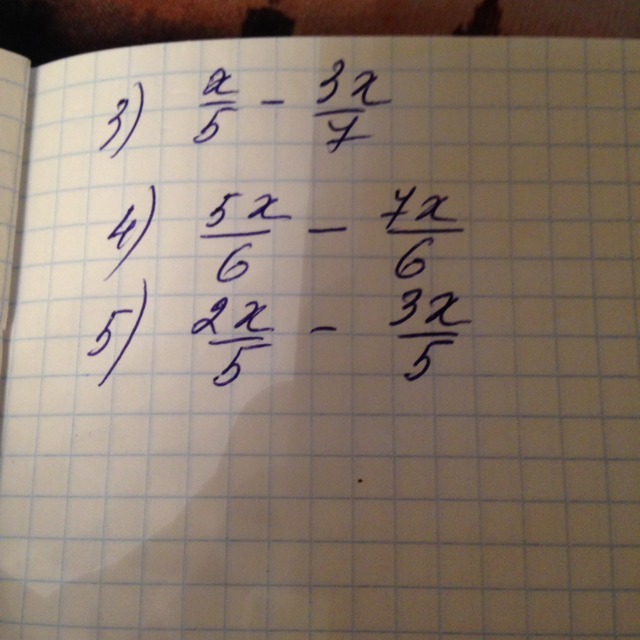 3) x/5 - 3x/7
4) 5x/6 - 7x/6
5) 2x/5 - 3x/5